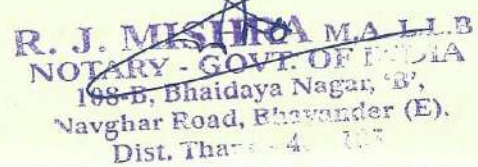 R. J. MISHRA M.A. L.L.B
NOTARY - GOVT. OF INDIA
108-B, Bhaidaya Nagar, 'B',
Navghar Road, Bhayander (E).
Dist. Thane